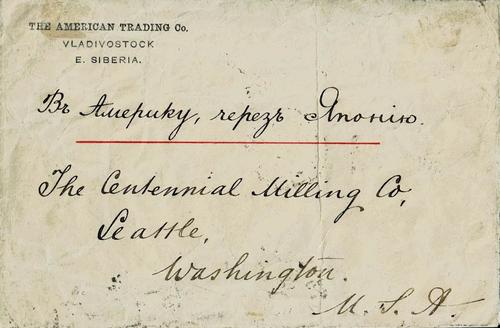 THE AMERICAN TRADING Co.
VLADIVOSTOCK
E. SIBERIA.
Въ Америку, черезъ Японію.
The Centennial Milling Co,
Seattle,
Washington.
U. S. A.